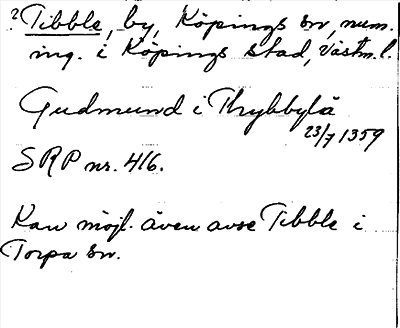 ? Tibble, by, Köpings sn, num.
ing. i Köpings stad, Västm.l.
Gudmund i Thykbylä
23/7 1359
SRP nr. 416.
Kan möjl. även avse Tibble i
Torpa sn.